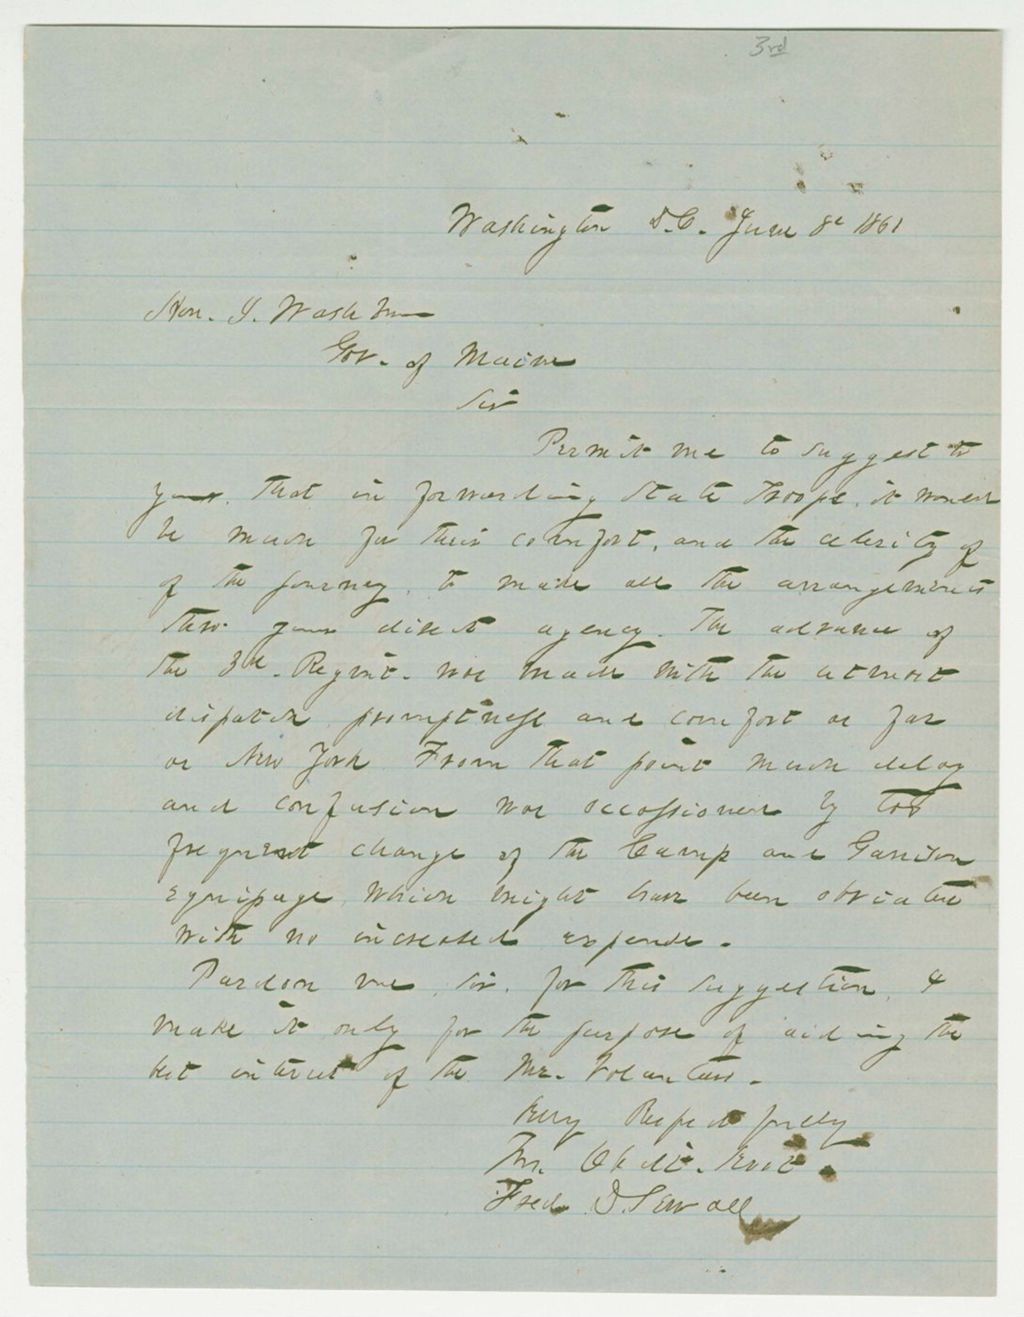 3rd
Washington D.C. June 8th 1861
Hon. I. Washburn
Gov. of Maine
Sir
Permit me to suggest to
you, that in forwarding State Troops, it would
be much for their comfort, and the celerity of
of the journey, to make all the arrangements
thro. your direct agency. The advance of
the 3d. Regmt. was made with the utmost
dispatch promptness and comfort as far
as New York. From that point much delay
and confusion was occassioned by too
frequent change of the Camp and Garrison
equipage, which might have been obviated
with no increased expense.
Pardon me, sir, for this suggestion, I
make it only for the purpose of aiding the
best interest of the Me. Volunteers.
Very Respectfully
Yr. Obdt. Svt.
Fred. D. Sewall